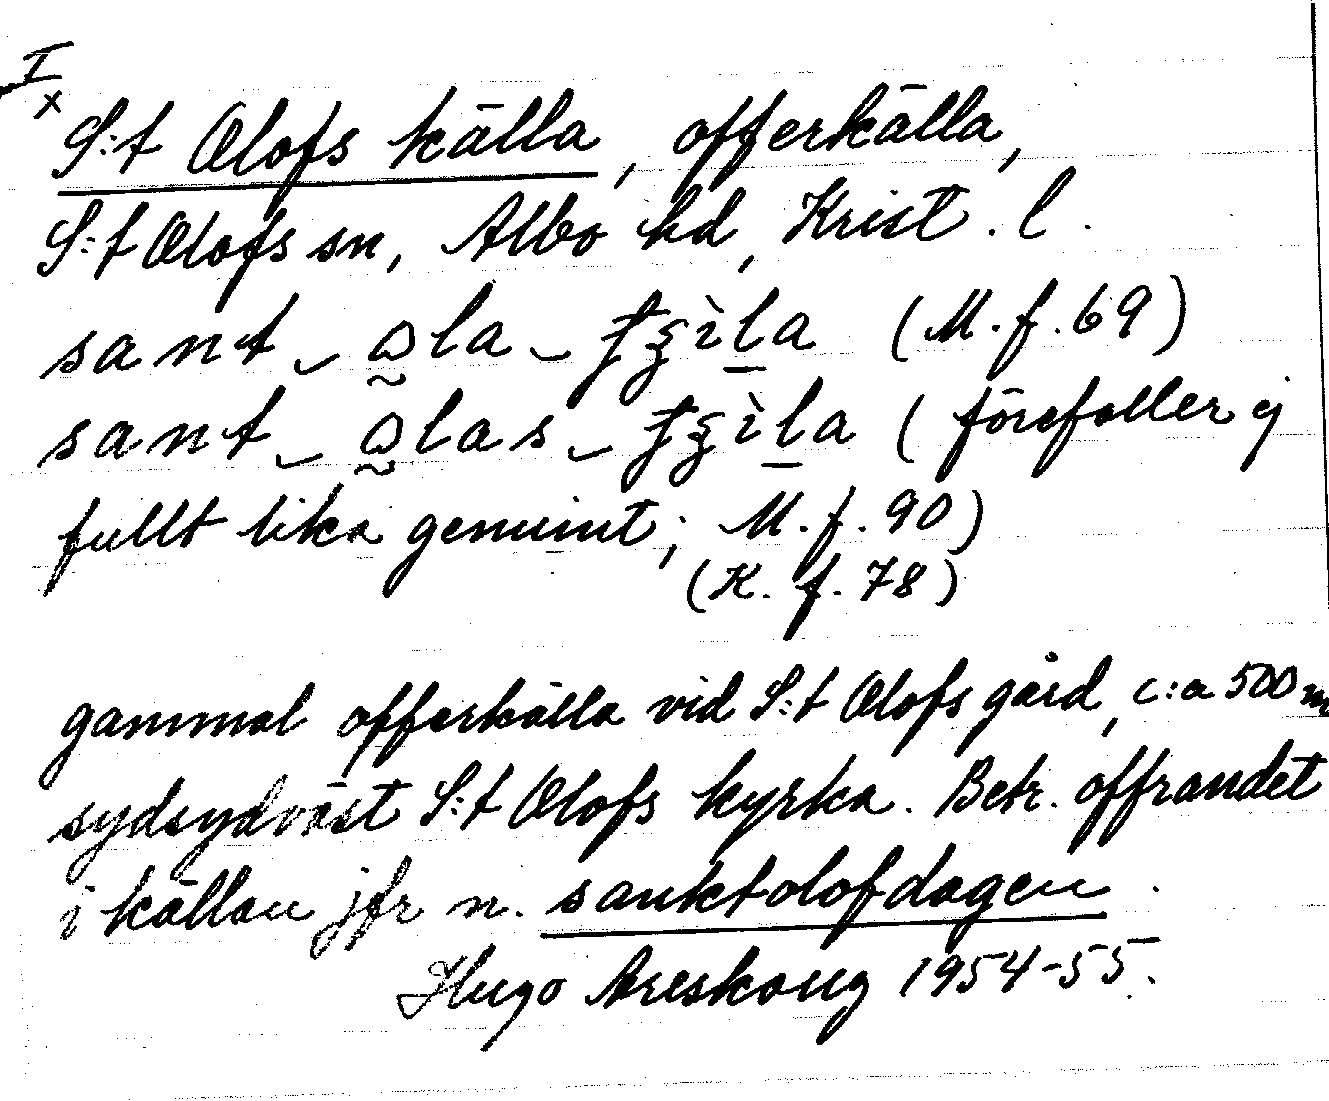 I
x
S:t Olofs källa, offerkälla,
S:t Olofs sn, Albo hd, Krist. l.
sant ‿ ɷla ‿ (M.f.69)
sant ‿ ɷlas ‿ (förefaller ej
fullt lika genuint; M.f.90)
(K.f.78)
gammal offerkälla vid S:t Olofs gård, c:a 500 m
sydsydväst S:t Olofs kyrka. Betr. offrandet
i källan jfr n. sanktolofdagen.
Hugo Areskoug 1954-55.